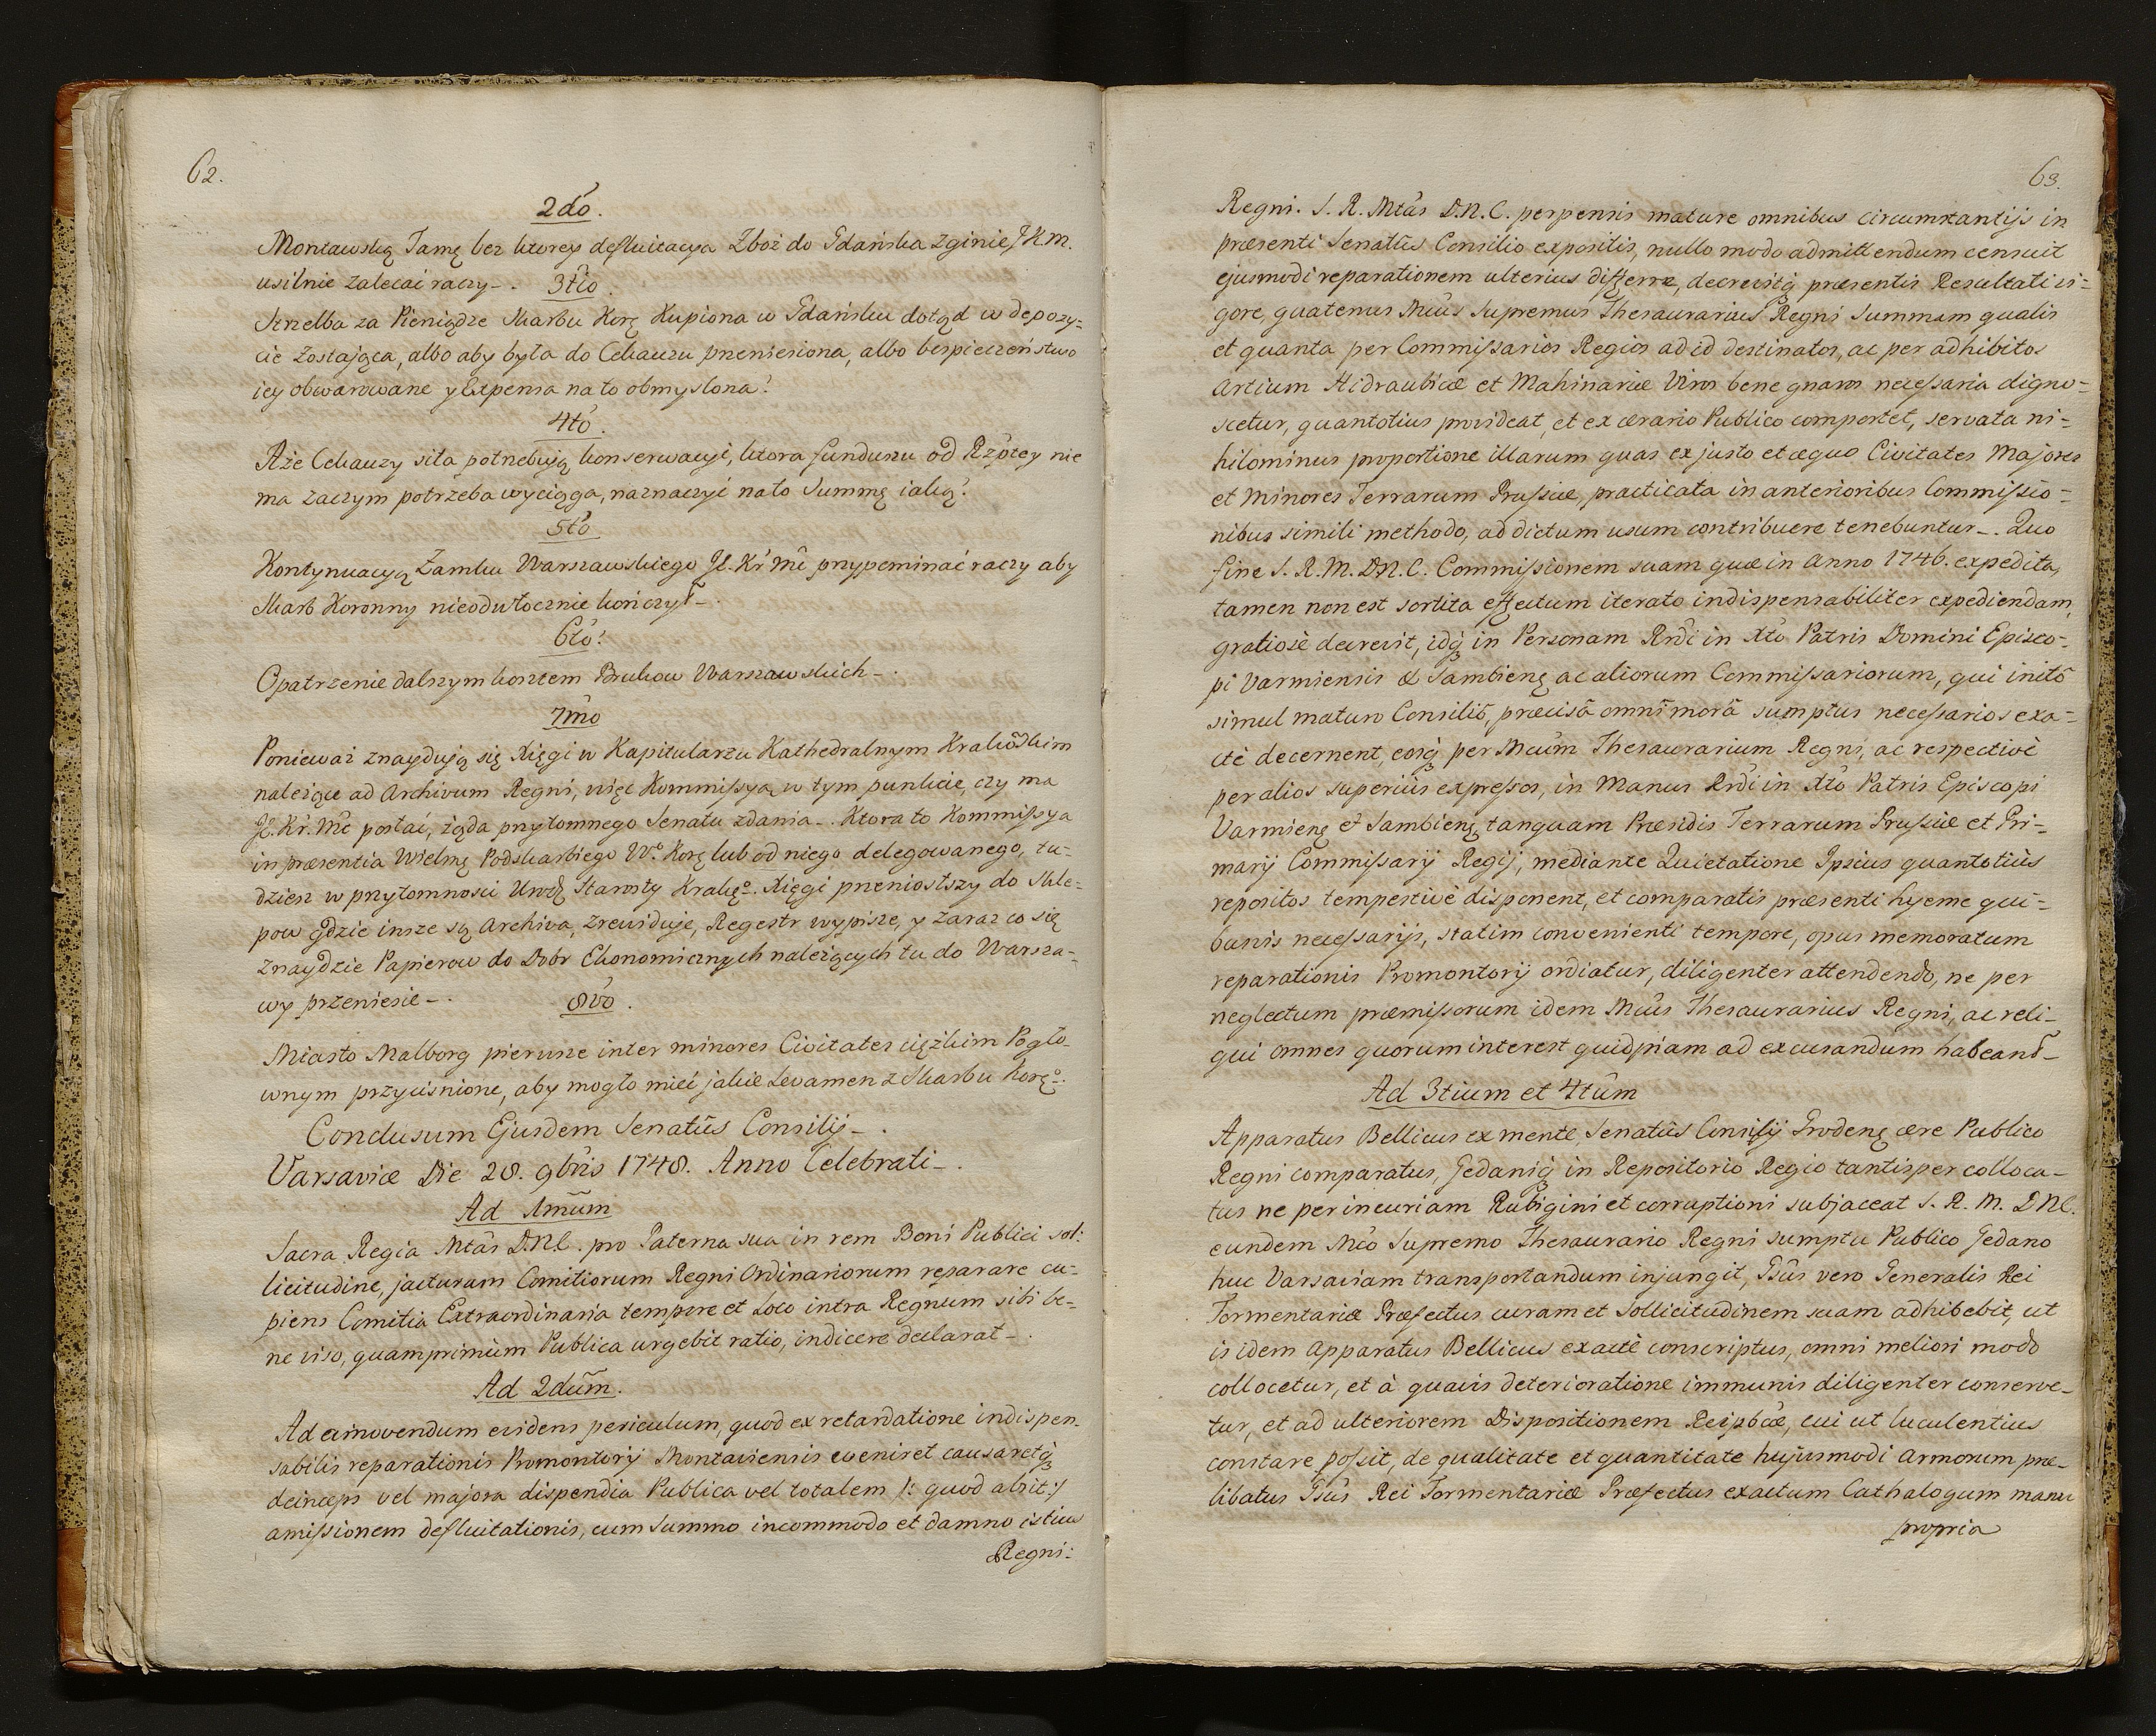 62.
2dó.
Montawską Tamę bez ktorey defluitacya Zboż do Gdańska zginie J.K.M.
usilnie zalecać raczy_.
3tió.
Strzelba za Pieniądze Skarbu Korę Kupiona w Gdańsku dotąd w depozy=
cie zostająca, albo aby była do Cekauzu przeniesiona, albo bespieczeństwo
iey obwarowane y Expensa na to obmyslona?
4tó.
A że Cekauzy siła potrzebują konserwacyi, ktora funduszu od Rzptey nie
ma zaczym potrzeba wyciąga, naznaczyć na to Summę iaką?
5tó
Kontynuacyą Zamku Warszawskiego JK. Kr. Mć przypominać raczy aby
Skarb Koronny nieodwłocznie kończył_.
6tó?
Opatrzenie dalszym kosztem Brukow Warszawskich_.
7mó
Ponieważ znayduią się Xięgi w Kapitularzu Kathedralnym Krakōdkim
należące ad Archivum Regni, więc Kommissya w tym punkcie, czy ma
JK. Kr. Mć posłać, żąda przytomnego Senatu zdania_. Ktora to Kommissya
in præsentia Wielmę Podskarbiego Wo. Korę lub od niego delegowanego, tu=
dziesz w przytomnosci Urodz Starosty Krakęo. Xięgi przeniosłszy do Skle=
pow gdzie insze są Archiva, zrewiduje, Regestr wypisze, y zaraz co się
znaydzie Papierow do Dobr Ekonomicznych należących tu do Warsza=
wy przeniesie_.
8vó.
Miasto Malborg pierwsze inter minores Civitates ciężkim Pogło=
wnym przyciśnione, aby mogło mieć jakie Levamen z Skarbu Koręo.
Conclusum Ejusdem Senatûs Consilij_.
Varsaviæ Die 28. 9bris 1748. Anno Celebrati_.
Ad 1mum
Sacra Regia Mtas D.N.C. pro Paterna sua in rem Boni Publici sol:
licitudine, jacturam Comitiorum Regni Ordinariorum reparare cu=
piens Comitia Extraordinaria tempore et Loco intra Regnum sibi be=
ne viso, quamprimùm Publica urgebit ratio, indicere declarat_.
Ad 2dum.
Ad amovendum evidens periculum, quod ex retardatione indispen=
sabilis reparationis Promontorij Montaviensis eveniret causaretq
deinceps vel majora dispendia Publica vel totalem /: quod absit :/
amissionem defluitationis, cum Summo incommodo et damno istius
Regni:
63.
Regni. S. R. Mtas D.N.C. perpensis mature omnibus circumstantijs in
præsenti Senatûs Consilio expositis, nullo modo admittendum censuit
ejusmodi reparationem ulterius differre, decrevitq præsentis Resultati vi=
gore, quatenus Mcus Supremus Thesaurarius Regni Summam qualis
et quanta per Commissarios Regios ad id destinatos, ac per adhibitos
Artium Hidraulicæ et Mahinariæ Viros bene gnaros necessaria digno=
scetur, quantotius provideat, et ex ærario Publico comportet, servata ni=
hilominus proportione illarum quas ex justo et æquo Civitates Majores
et Minores Terrarum Prussiæ, practicata in anterioribus Commissio=
nibus simili methodo, ad dictum usum contribuere tenebuntur_. Quo
fine S. R. M. D.N.C. Commissionem suam quæ in Anno 1746. expedita,
tamen non est sortita effectum iterato indispensabiliter expediendam,
gratiosè decrevit, idq in Personam Rrdi in Xto Patris Domini Episco=
pi Varmiensis & Sambieng ac aliorum Commissariorum, qui initō
simul maturo Consiliō, præcisâ omni morâ sumptus necessarios exa=
ctè decernent, eosq per Mcum Thesaurarium Regni, ac respectivè
per alios superiùs expressos, in Manus Rrdi in Xto Patris Episcopi
Varmieng et Sambieng tanquam Præsidis Terrarum Prussiæ et Pri=
marij Commissarij Regij, mediante Quietatione Ipsius quantotiùs
repositos tempestivè disponent, et comparatis præsenti hyeme qui=
busvis necessarijs, statim convenienti tempore, opus memoratum
reparationis Promontorij ordiatur, diligenter attendendo, ne per
neglectum præmissorum idem Mcus Thesaurarius Regni, ac reli=
qui omnes quorum interest quidpiam ad excusandum habeant_
Ad 3tium et 4tum
Apparatus Bellicus ex mente Senatûs Consilij Grodeng ære Publico
Regni comparatus, Gedaniq in Repositorio Regio tantisper colloca=
tus ne per incuriam Rubigini et corruptioni subjaceat S. R. M. D.N.C.
eundem Mco Supremo Thesaurario Regni sumptu Publico Gedano
huc Varsaviam transportandum injungit, Gsus vero Generalis Rei
Tormentariæ Præfectus curam et sollicitudinem suam adhibebit, ut
is idem Apparatus Bellicus exactè conscriptus, omni meliori modo
collocetur, et à quavis deterioratione immunis diligenter conserve=
tur, et ad ulteriorem Dispositionem Reipbcæ, cui ut luculentius
constare possit, de qualitate et quantitate hujusmodi Armorum præ=
libatus Gsus Rei Tormentariæ Præfectus exactum Cathalogum manu
propria